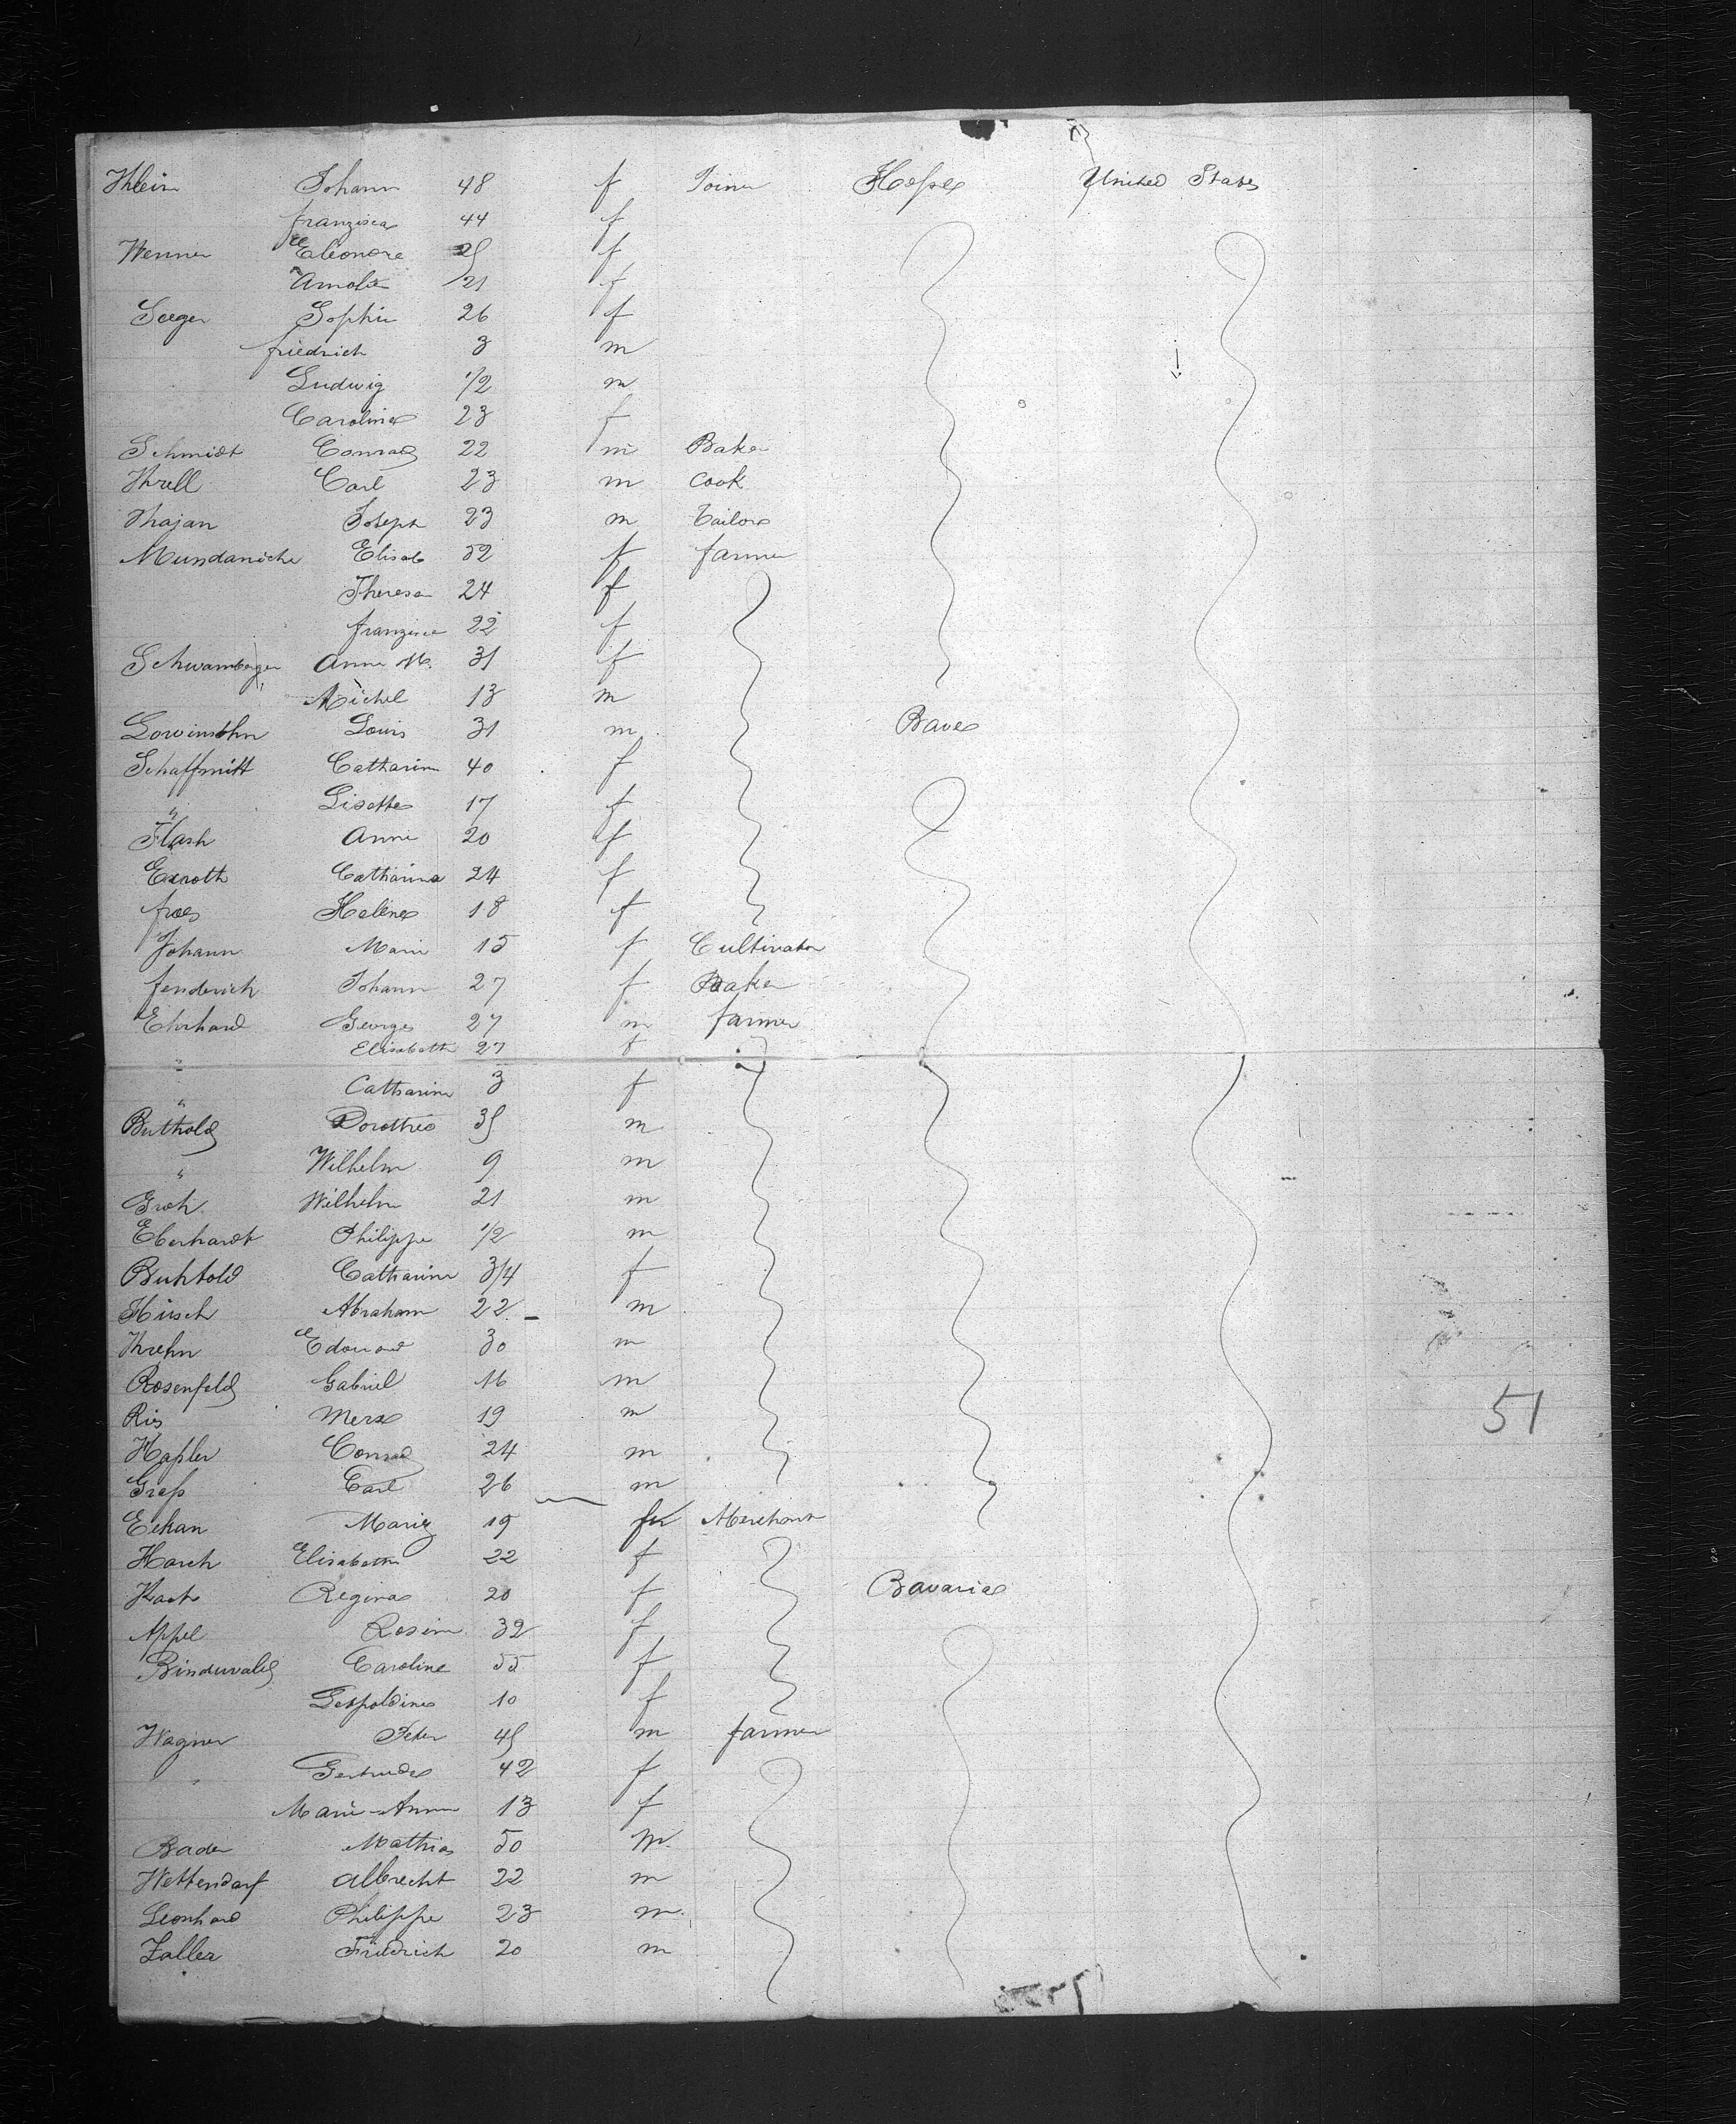 Klein Johann 48 f Joiner Hesse United States
franzisca 44 f
Wenner Eleonore 25 f
Amalie 21 f
Seeger Sophie 26 f
friedrich 3 m
Ludwig 1/2 m
Caroline 23 f
Schmidt Conrad 22 m Baker
Krell Carl 23 m Cook
Khajan Joseph 23 m Tailor
Mundaniche Elisab 52 f farmer
Theresa 24 f
franzisca 22 f
Schwamberger Anna M. 31 f
Michel 13 m
Lowinsohn Louis 31 m Bave
Schaffnitt Catharine 40 f
" Lisette 17 f
Flash Anna 20 f
Exroth Catharina 24 f
froes Helene 18 f
Johann Marie 15 f Cultivator
fenderich Johann 27 f Baker
Ehrhard George 27 m farmer
" Elisabeth 27 f
" Catharine 3 f
Buthold Dorothee 35 m
" Wilhelm 9 m
Groh Wilhelm 21 m
Eberhardt Philippe 1/2 m
Buhtold Catharine 3/4 f
Hirsch Abraham 22 m
Krehn Edouard 30 m
Rosenfeld Gabriel 16 m
51
Ries Merx 19 m
Hassler Conrad 24 m
Gress Carl 26 m
Eckan Marie 19 f Merchant
Harch Elisabeth 22 f
Koch Regina 20 f Bavaria
Appel Rosine 32 f
Binduwald Caroline 55 f
Leopoldine 10 f
Wagner Peter 45 m farmer
" Gertrude 42 f
Marie-Anna 13 f
Bader Mathias 50 m.
Wettendorf Albrecht 22 m
Leonhard Philippe 23 m.
Zaller Friedrich 20 m